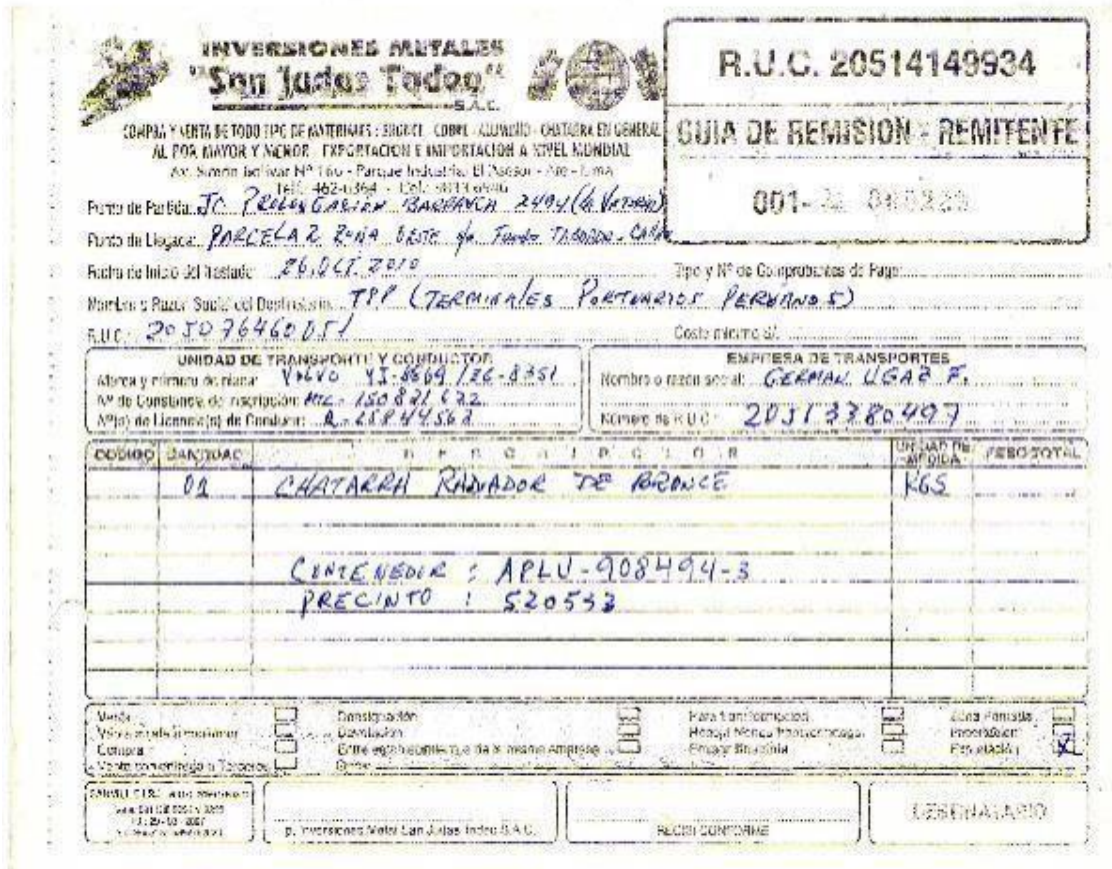 INVERSIONES METALES
"San Judas Tadeo"
S.A.C.
COMPRA Y VENTA DE TODO TIPO DE MATERIALES : BRONCE - COBRE - ALUMINIO - CHATARRA EN GENERAL
AL POR MAYOR Y MENOR - EXPORTACION E IMPORTACION A NIVEL MUNDIAL
Av. Simón Bolívar Nº 160 - Parque Industrial El Asesor - Ate - Lima
Telf.: 462-6364
R.U.C. 20514149934
GUIA DE REMISION - REMITENTE
001-
Punto de Partida: JC PROLONGACIÓN BARRANCA 2494 (La Victoria)
Punto de Llegada: PARCELA 2 ZONA OESTE Fundo TABOADA - CALLAO
Fecha de Inicio del Traslado: 26.OCT.2010
Tipo y Nº de Comprobantes de Pago:
Nombre o Razón Social del Destinatario: TPP (TERMINALES PORTUARIOS PERUANOS)
R.U.C.: 20507646005
Costo mínimo S/.
UNIDAD DE TRANSPORTE Y CONDUCTOR
Marca y número de placa: VOLVO YI-8669 / ZG-8351
Nº de Constancia de Inscripción: MTC - 150821622
Nº(s) de Licencia(s) de Conducir: Q-25844563
EMPRESA DE TRANSPORTES
Nombre o razón social: GERMAN UGAZ F.
Número de R.U.C.: 20513380497
CODIGO CANTIDAD DESCRIPCION UNIDAD DE MEDIDA PESO TOTAL
01 CHATARRA RADIADOR DE BRONCE KGS
CONTENEDOR : APLU-908494-3
PRECINTO : 520533
Venta Consignación Para transformación Zona Primaria
Devolución Importación
Compra Entre establecimientos de la misma empresa Emisor Itinerante Exportación X
Venta con entrega a Terceros Otros
p. Inversiones Metal San Judas Tadeo S.A.C.
RECIBI CONFORME
DESTINATARIO